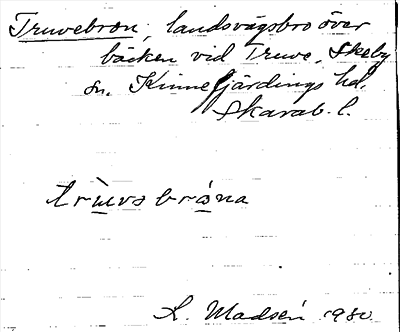 Truvebron, landsvägsbro över
bäcken vid Truve, Skeby
sn. Kinnefjärdings hd.
Skarab. l.
trùvs bróna
L. Madsén 1980